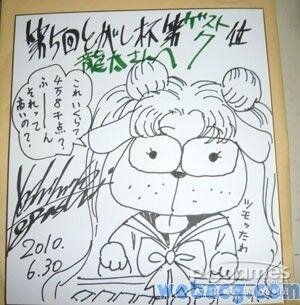 第5回とがし杯第7位
ゲスト
龍太さんへ
これいくら？
4万8千点？
ふーん
それって
高いの？
ツモったわ
2010.
6.30